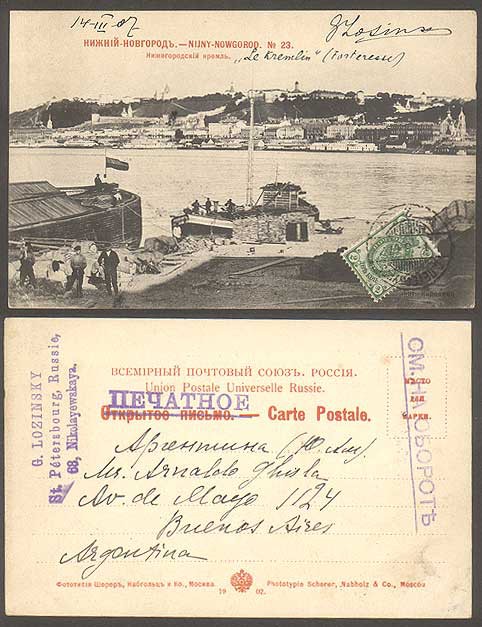 14-III-07
G Lozinsky
НИЖНІЙ-НОВГОРОДЪ. — NIJNY-NOWGOROD. № 23.
Нижегородскій кремль. „Le Kremlin" (Forteresse)
G. LOZINSKY
St. Pétersbourg, Russie,
68, Nikolayewskaya.
ВСЕМІРНЫЙ ПОЧТОВЫЙ СОЮЗЪ. РОССІЯ.
Union Postale Universelle Russie.
ПЕЧАТНОЕ
Открытое письмо. — Carte Postale.
СМ. НАОБОРОТЪ
МѢСТО
ДЛЯ
МАРКИ.
Аргентина (Ю. Ам).
Mr. Arnaldo Ghisla
Av. de Mayo 1124
Buenos Aires
Argentina
Фототипія Шереръ, Набгольцъ и Ко., Москва.
19 02.
Phototypie Scherer, Nabholz & Co., Moscou